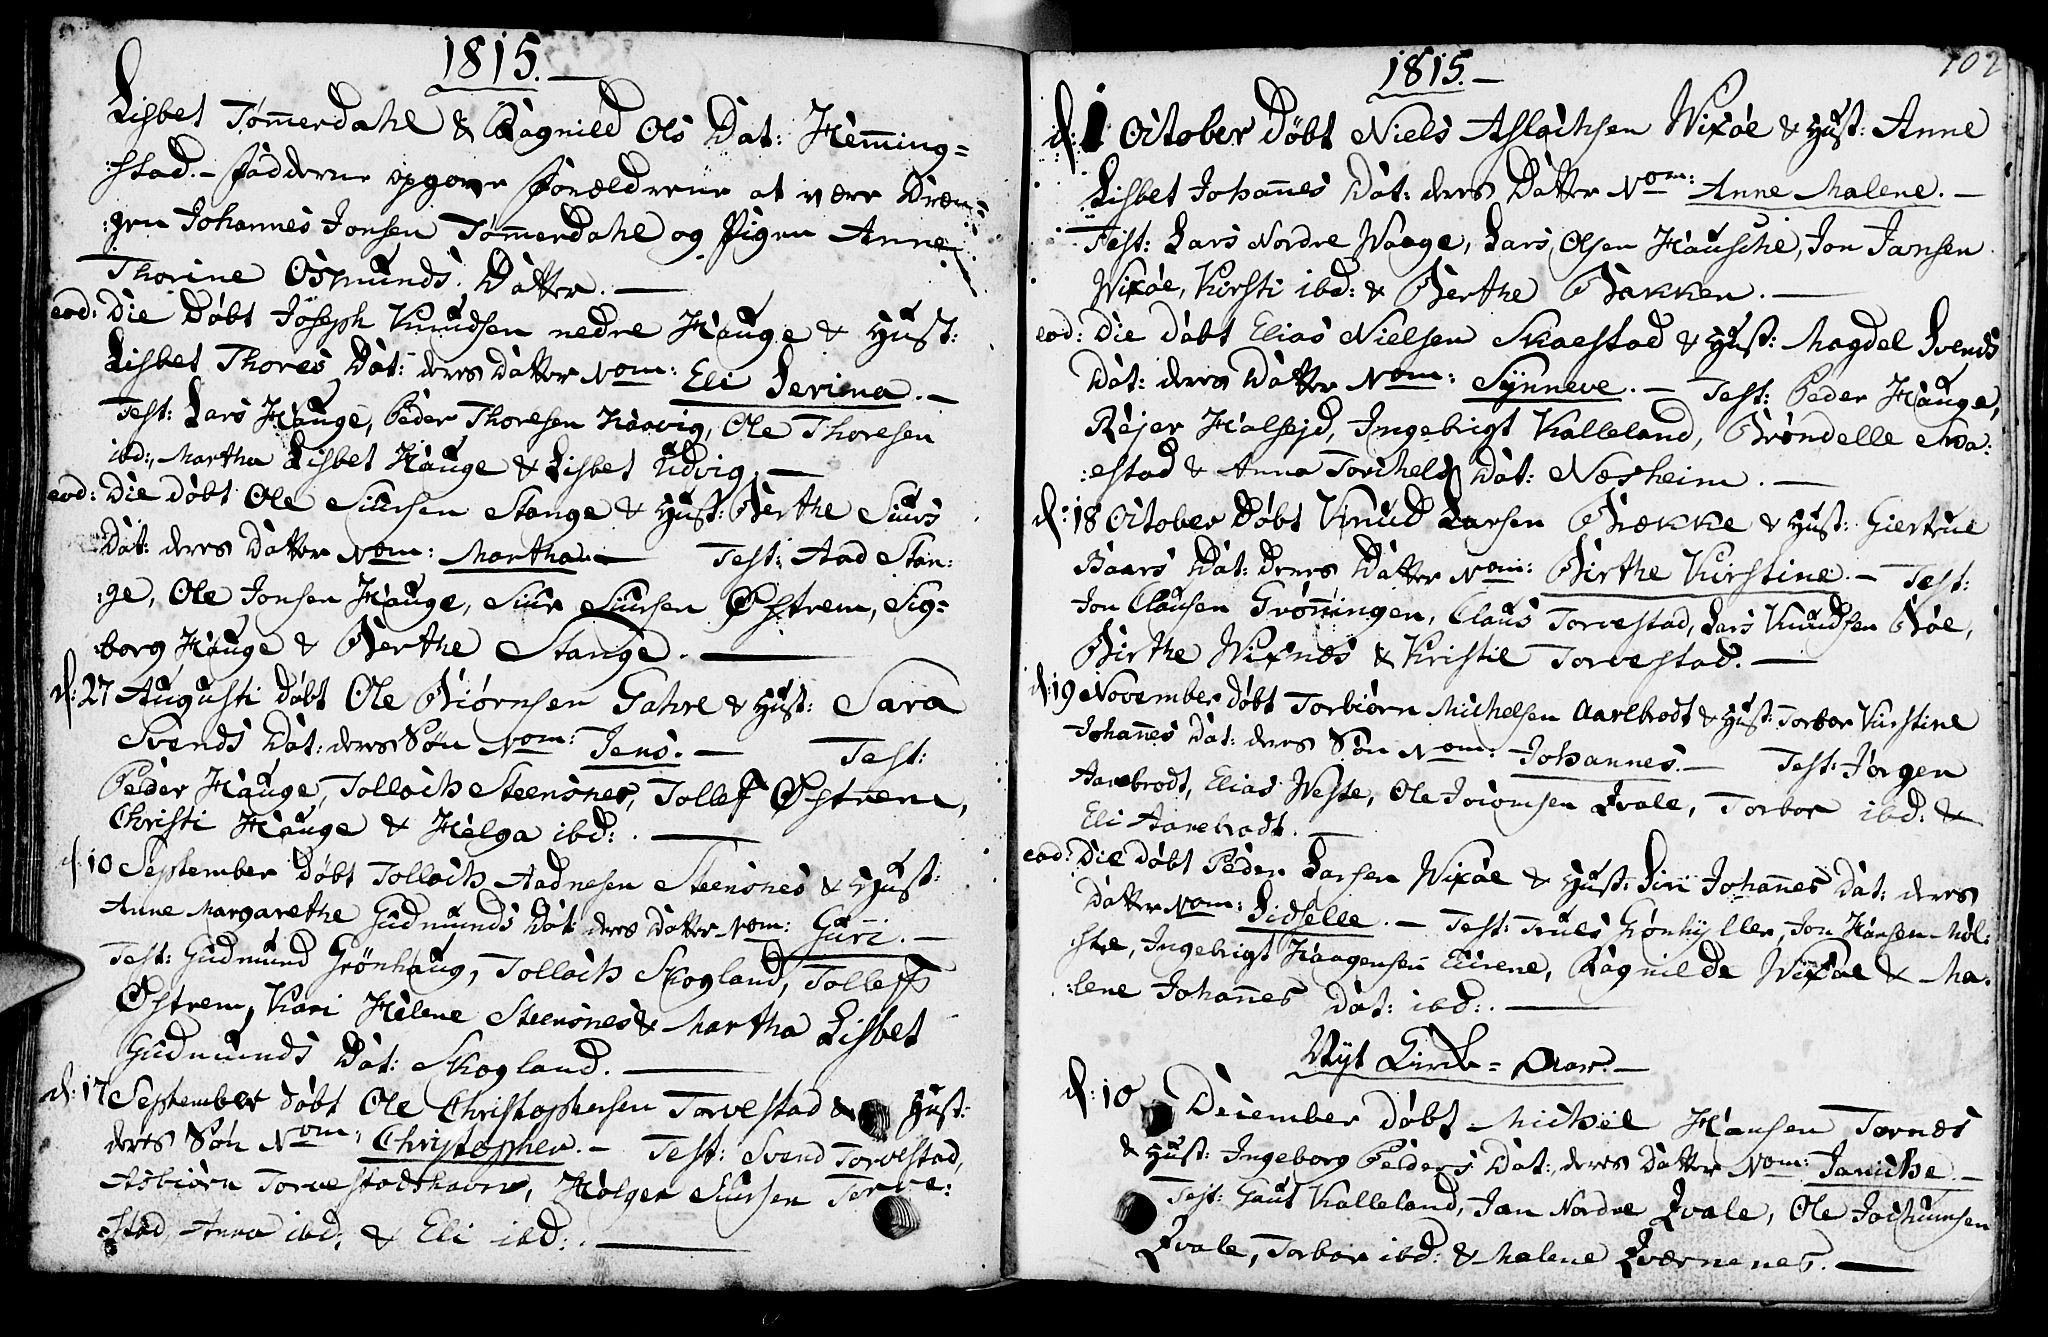 1815.
Lisbet Tømerdahl & Ragnild Ols Dat: Heming=
:stad. – Fadderne opgover Forældrene at være Dren=
:gen Johannes Jonsen Tømerdahl og Pigen Anne
Thorine Osmunds Datter. —
eod: Die Døbt Joseph Knudsen nedre Hauge & Hust:
Lisbet Thores Dat: deres Datter Nom: Eli Serina. –
Test: Lars Hauge, Peder Thoresen Haavig, Ole Thoresen
ibd:, Martha Lisbet Hauge & Lisbet Udvig. —
eod: Die døbt Ole Siursen Stange & Hust: Berthe Siurs
Dat: deres Datter Nom: Martha. — Test: Aad Stan:
:ge, Ole Jonsen Hauge, Siur Siursen Østrem, Sig=
:borg Hauge & Berthe Stange. —
d: 27 Augusti døbt Ole Biørnsen Gahre & Hust: Sara
Svends Dat: deres Søn Nom: Jens. — Test:
Peder Hauge, Tollach Steensnes, Tollef Østrem,
Christi Hauge & Helga ibd: . —
d: 10 September Døbt Tollach Aadnesen Steensnes & Hust:
Anne Margarethe Gudmunds Dat: deres Datter Nom: Guri. –
Test: Gudmund Grönhaug, Tollach Skogland, Tolleff
Østrem, Kari Helene Steensnes & Martha Lisbet
Gudmunds Dat: Skogland. —
d: 17 September døbt Ole Christophersen Torvestad & Hust:
deres Søn Nom: Christopher. – Test: Svend Torvestad,
Asbiørn Torvestadshavn, Holger Siursen Torve:
:stad, Anna ibd: & Eli ibd: . —
102
1815. –
d: 1 October Døbt Niels Aslachsen Wixøe & Hust: Anne
Lisbet Johannes Dat: deres Datter Nom: Anne Malene. –
Test: Lars Nordre Waage, Lars Olsen Hausche, Jon Jansen
Wixøe, Kirsti ibd: & Berthe Bakken. —
eod: Die døbt Elias Nielsen Skaestad & Hust: Magdel Svends
Dat: deres Datter Nom: Synneve. – Test: Peder Hauge,
Rejer Halsejd, Ingebrigt Kalleland, Brøndelle Ska:
:estad & Anna Torchels Dat: Næsheim. —
d: 18 October Døbt Knud Larsen Brække & Hust: Giertrue
Baars Dat: deres Datter Nom: Birthe Kirstine. – Test:
Jon Clausen Grøningen, Claus Torvestad, Lars Knudsen Bøe,
Birthe Wixnes & Kristie Torvestad. —
d: 19 November døbt Torbiørn Michelsen Aarebrodt & Hust: Torbor Kirstine
Johannes Dat: deres Søn Nom: Johannes. – Test: Jørgen
Aarebrodt, Elias Weste, Ole Jocomsen Qvale, Torbor ibd: &
Eli Aarebrodt. —
eod: Die døbt Peder Larsen Wixøe & Hust: Siri Johannes Dat: deres
Datter Nom: Sidselle. – Test: Truls Grønhyller, Jon Hansen Møl:
:stre, Ingebrigt Haagensen Eirene, Ragnilde Wixøe & Ma:
:lene Johannes Dat: ibd: . —
Nyt Kirke = Aar. –
d: 10 December døbt Michel Hansen Tornes
& Hust: Ingeborg Peders Dat: deres Datter Nom: Janiche. –
Test: Gaut Kalleland, Jan Nordre Qvale, Ole Jochumsen
Qvale, Torbor ibd: & Malene Qværnenes. —